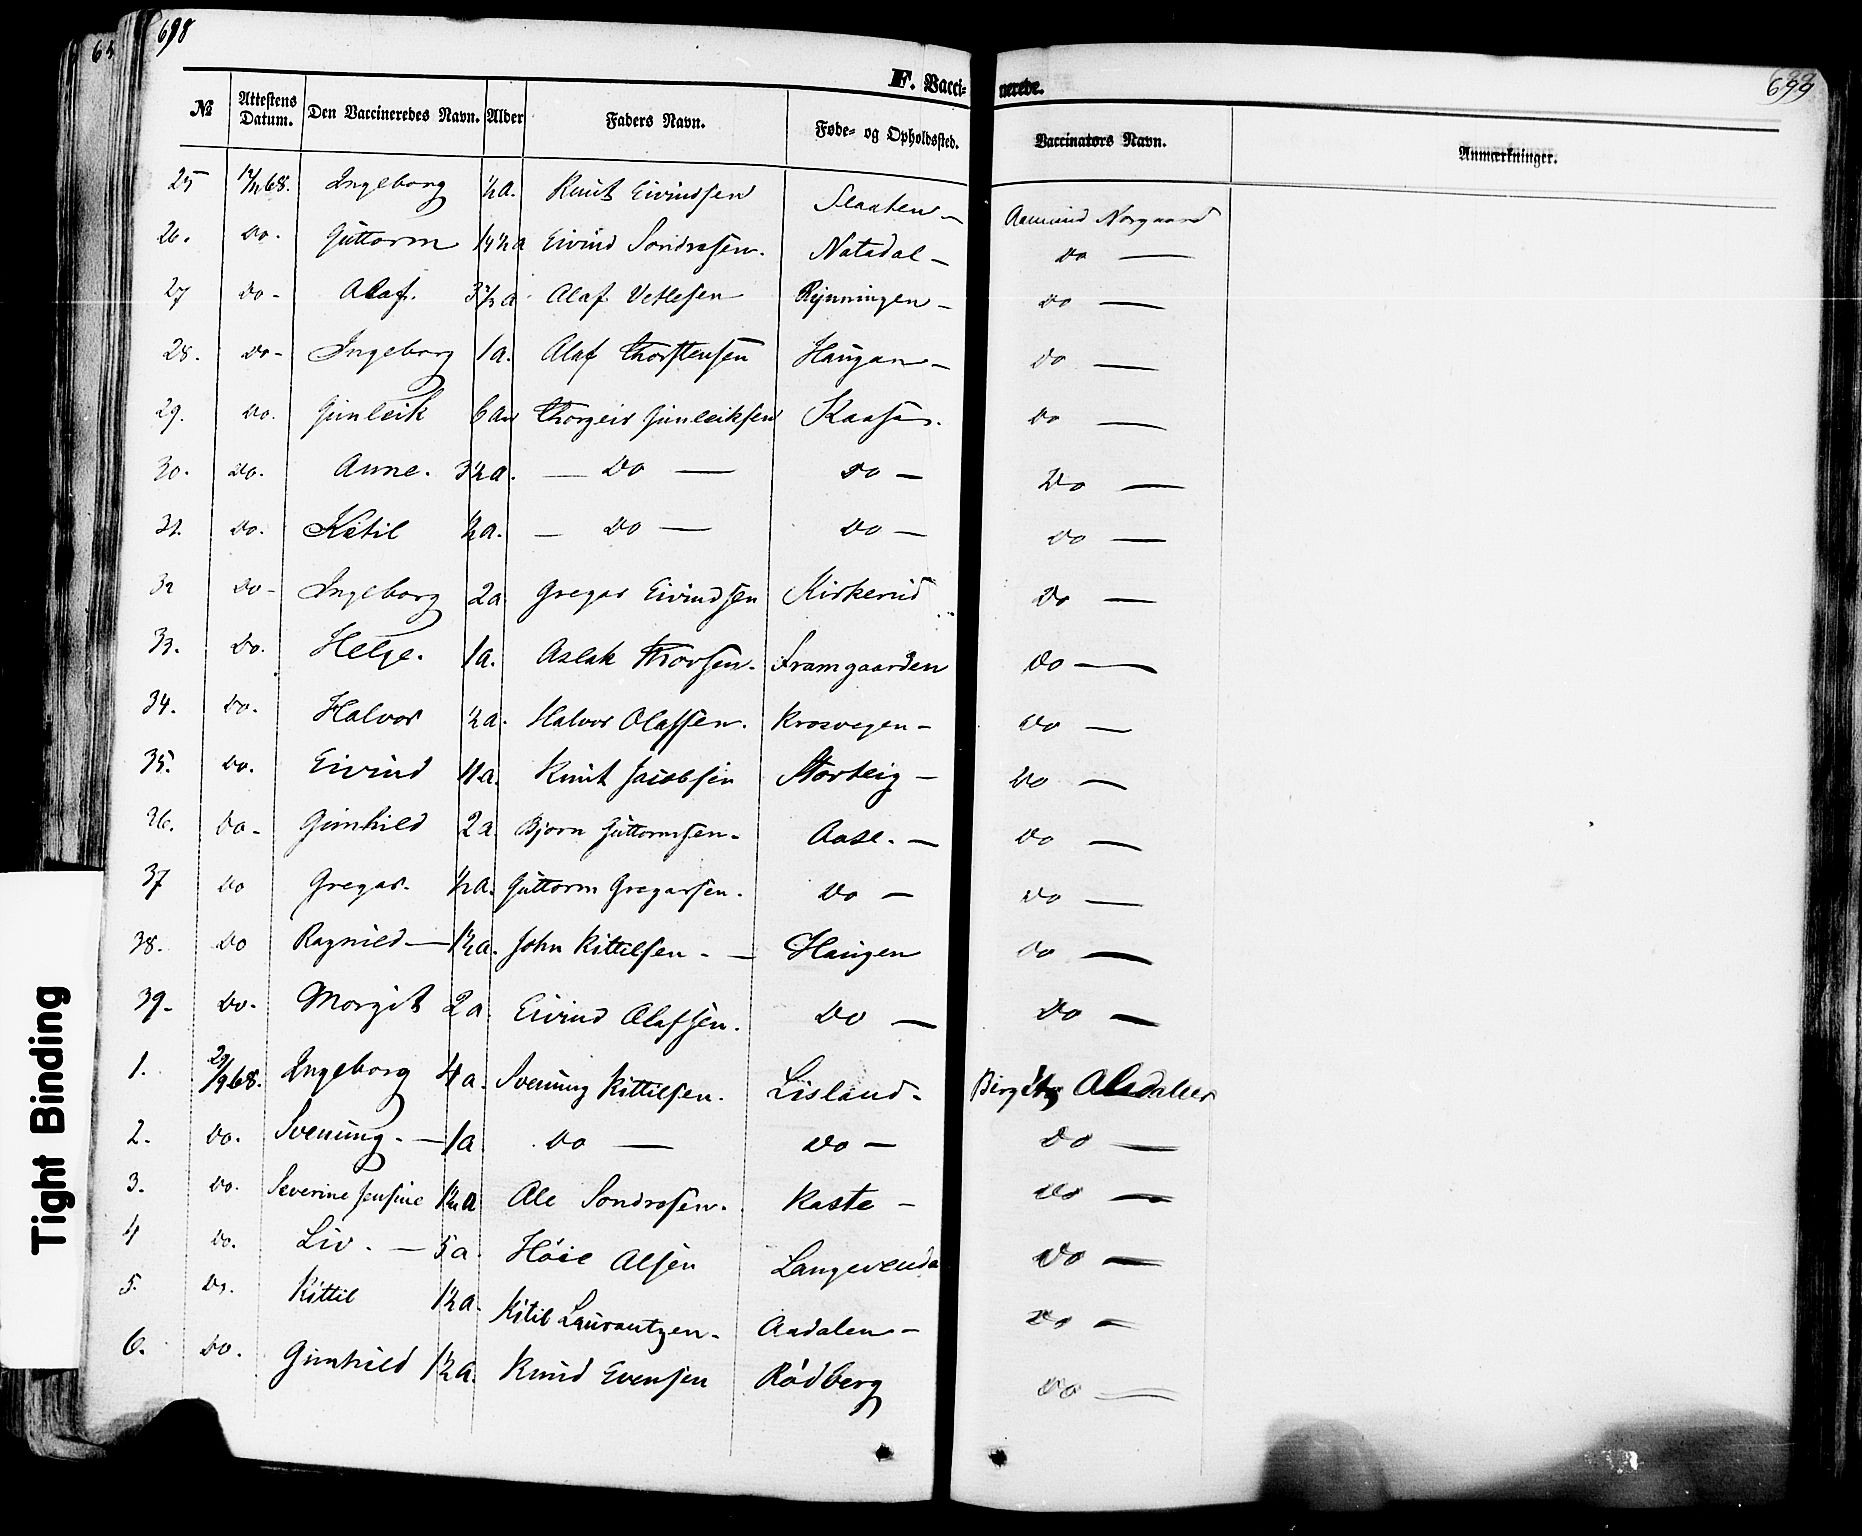 698
699
F. Vaccinerede.
№ Attestens Datum. Den Vaccineredes Navn. Alder Faders Navn. Føde- og Opholdssted. Vaccinators Navn. Anmærkninger.
25 68. Ingeborg ½a. Knut Eivindsen Slaaten – Aamund Norgaard
26. Do. Guttorm Eivind Sondresen. Natadal – Do —
27 Do – Olaf. Olaf Vetlesen Rynningen – Do —
28. Do – Ingeborg 1a. Olaf Thorstensen Haugan – Do —
29. Do. Gunleik 6 aar Thorgeir Gunleiksen Kaasa. Do —
30. Do. Anne. 3½a. — Do — Do – Do —
31. Do. Ketil ½a. — Do — Do – Do —
32 Do – Ingeborg 2a Gregar Eivindsen Kirkerud Do —
33. Do. Helge. 1a. Aslak Thorsen. Framgaarden Do —
34. Do. Halvor ½a. Halvor Olafsen. Krosvegen – Do —
35. Do. Eivind Knut Jacobsen Storteig – Do —
36. Do – Gunhild 2a Bjorn Guttormsen – Aase. – Do —
37 Do Gregar. ½a. Guttorm Gregarsen. Do – Do —
38. Do Ragnild — 1½a. John Kittilsen. – Haugen Do —
39. Do. Morgit 2a. Eivind Olafsen. Do — Do —
1. 29/9 68. Ingeborg 4a. Svenung Kittilsen. Lisland – Olsdatter
2. Do. Svenung. — 1a Do — Do – Do —
3. Do. Severine Jensine 1½a Ole Sondresen. Kaste – Do —
4 Do. Liv. — 5a. Høie Olsen Do —
5. Do. Kittil 1½a. Kitil Laurantzen – Aadalen – Do —
6. Do. Gunhild 1½a. Knud Evensen Rødberg Do —
Tight Binding